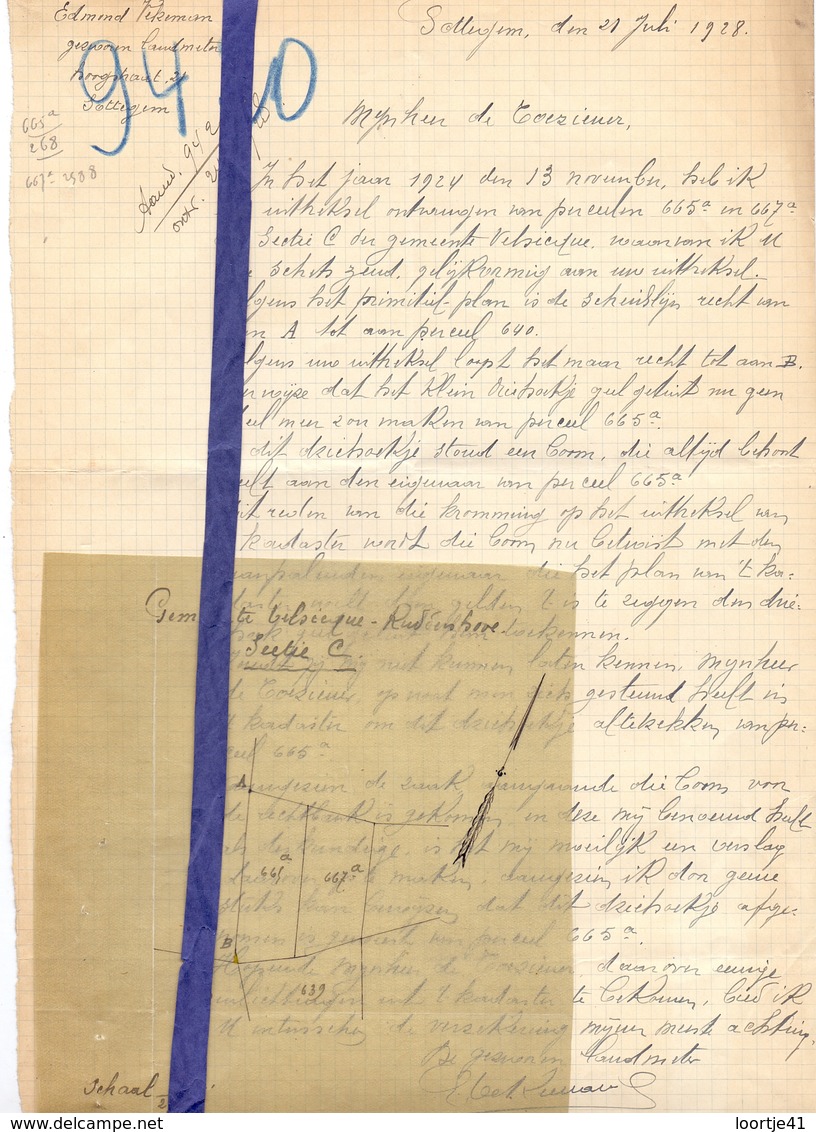 Edmond Vekeman
gezworen landmeter
Hoogstraat 21
Sottegem
Sottegem, den 21 Juli 1928.
94 10
665ª
268
667ª 2588
Mynheer de Toeziener,
In het jaar 1924 den 13 november, heb ik
uittreksel ontvangen van perceelen 665ª en 667ª
Sectie C der gemeente Velsicque, waarvan ik U
schets zend, gelijkvormig aan uw uittreksel.
lgens het primitief plan is de scheidslijn recht van
n A tot aan perceel 640.
lgens uw uittreksel loopt het maar recht tot aan B.
er wijze dat het klein driehoekje geel getint nu geen
eel meer zou maken van perceel 665ª.
dit driehoekje stond een boom, die altijd behoort
eeft aan den eigenaar van perceel 665ª
it reden van die kromming op het uittreksel van
kadaster wordt die boom nu betwist met den
aanpalenden eigenaar, die het plan van 't ka-
t is te zeggen den drie-
toekennen.
my niet kunnen laten kennen, Mynheer
de Toeziener, op wat men zich gesteund heeft in
't kadaster om dit driehoekje af te trekken van per-
ceel 665ª
Aangezien de zaak, aangaande die boom voor
de rechtbank is gekomen, en deze mij benoemd heeft
als deskundige, is het mij moeilijk een verslag
daarover te maken, aangezien ik door geene
stukken kan bewijzen dat dit driehoekje afge-
nomen is geweest van perceel 665ª.
Hopende Mynheer de Toeziener, daarover eenige
inlichtingen uit 't kadaster te bekomen, bied ik
U intusschen de verzekering mijner meest achting.
De gezworen landmeter
E Vekeman
Gemeente Velsicque-Ruddershove
Sectie C.
A
665ª
667ª
B
639
Schaal
loortje41